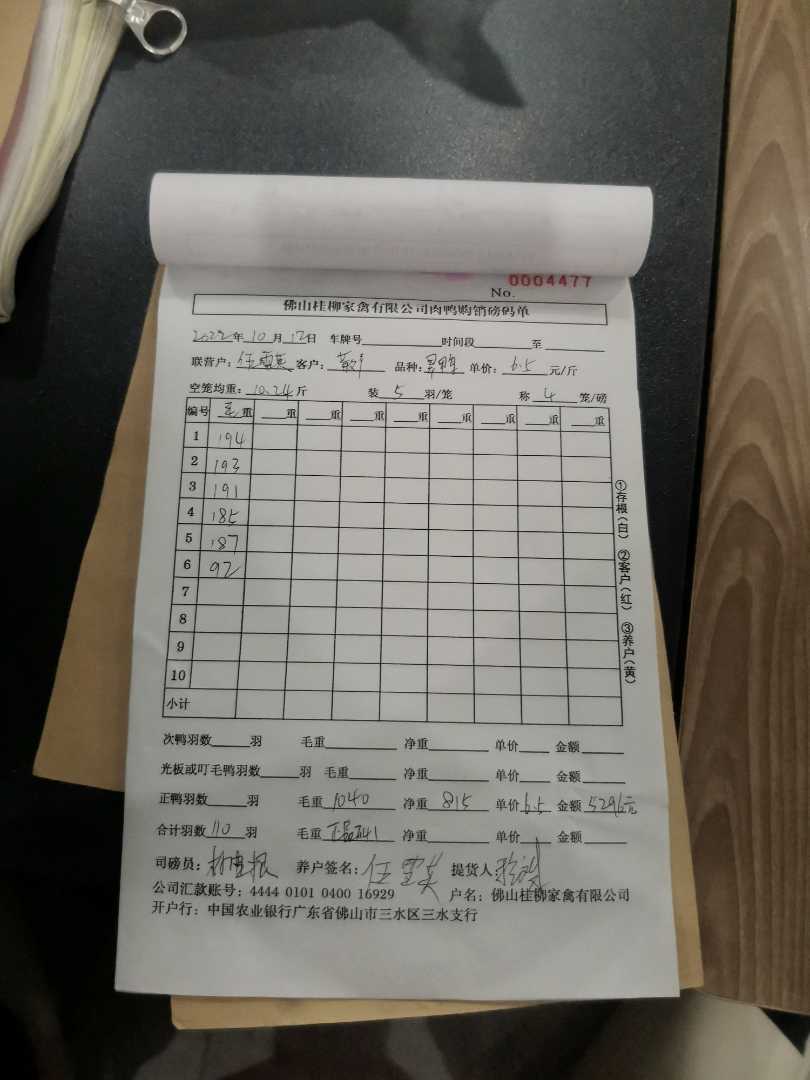 No. 0004477
佛山桂柳家禽有限公司肉鸭购销磅码单
2022年 10 月 12日 车牌号 时间段 至
联营户: 任 客户: 品种: 单价: 6.5 元/斤
空笼均重: 10.24 斤 装 5 羽/笼 称 4 笼/磅
编号 毛重 重 重 重 重 重 重 重 重
1 194
2 193
3 191
4 185
5 187
6 92
7
8
9
10
小计
①存根(白) ②客户(红) ③养户(黄)
次鸭羽数 羽 毛重 净重 单价 金额
光板或叮毛鸭羽数 羽 毛重 净重 单价 金额
正鸭羽数 羽 毛重 1040 净重 815 单价 6.5 金额 5296元
合计羽数 110 羽 毛重 净重 单价 金额
司磅员: 养户签名: 任 提货人:
公司汇款账号: 4444 0101 0400 16929 户名: 佛山桂柳家禽有限公司
开户行: 中国农业银行广东省佛山市三水区三水支行